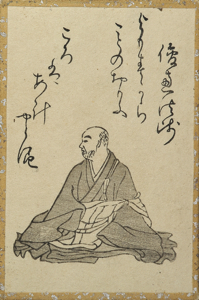 俊恵法師
よもすがら
ものおもふ
ころ
は
あけ
やらぬ